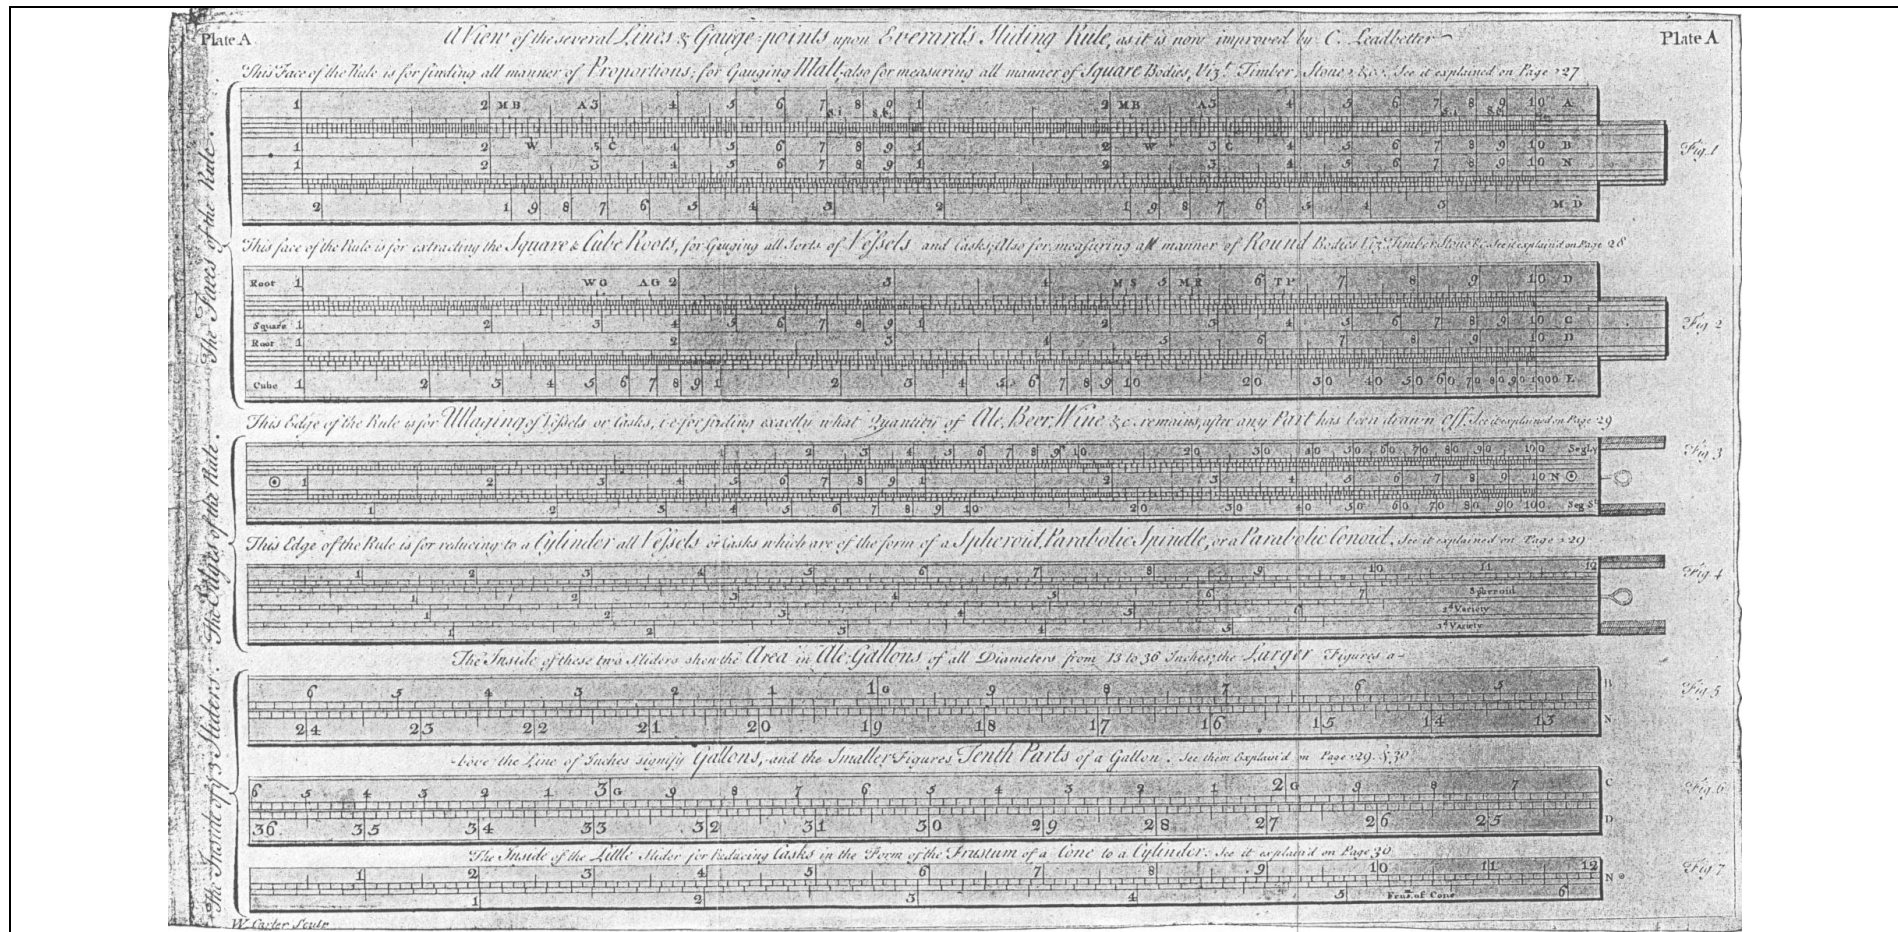 Plate A
A View of the several Lines & Gauge-points upon Everard's Sliding Rule, as it is now improved by C. Leadbetter
Plate A
This Face of the Rule is for finding all manner of Proportions; for Gauging Malt; also for measuring all manner of Square Bodies, Vizt. Timber, Stone, &c. See it explained on Page 27
1 2 MB A 3 4 5 6 7 8 9 1 2 MB A 3 4 5 6 7 8 9 10 A
S.i S.i
1 2 W 3 C 4 5 6 7 8 9 1 2 W 3 C 4 5 6 7 8 9 10 B
1 2 3 4 5 6 7 8 9 1 2 3 4 5 6 7 8 9 10 N
2 1 9 8 7 6 5 4 3 2 1 9 8 7 6 5 4 3 M D
Fig. 1
This face of the Rule is for extracting the Square & Cube Roots, for Gauging all Sorts of Vessels and Casks; Also for measuring all manner of Round Bodies Viz. Timber Stone &c. See it explained on Page 28
Root 1 WG AG 2 3 4 MS 5 MR 6 TP 7 8 9 10 D
Square 1 2 3 4 5 6 7 8 9 1 2 3 4 5 6 7 8 9 10 C
Root 1 2 3 4 5 6 7 8 9 10 D
Cube 1 2 3 4 5 6 7 8 9 1 2 3 4 5 6 7 8 9 10 20 30 40 50 60 70 80 90 1000 E
Fig. 2
This Edge of the Rule is for Ullaging of Vessels or Casks, i.e. for finding exactly what Quantity of Ale, Beer, Wine &c. remains, after any Part has been drawn off. See it explained on Page 29
1 2 3 4 5 6 7 8 9 10 20 30 40 50 60 70 80 90 100 Seg Ly
1 2 3 4 5 6 7 8 9 1 2 3 4 5 6 7 8 9 10 N
1 2 3 4 5 6 7 8 9 10 20 30 40 50 60 70 80 90 100 Seg St
Fig. 3
This Edge of the Rule is for reducing to a Cylinder all Vessels or Casks which are of the form of a Spheroid, Parabolic Spindle, or a Parabolic Conoid. See it explained on Page 29
1 2 3 4 5 6 7 8 9 10 11 12
1 2 3 4 5 6 7 Spheroid
1 2 3 4 5 6 2d Variety
1 2 3 4 5 3d Variety
Fig. 4
The Inside of these two Sliders show the Area in Ale-Gallons of all Diameters from 13 to 36 Inches; the Larger Figures a-
6 5 4 3 2 1 1 G 9 8 7 6 5 B
24 23 22 21 20 19 18 17 16 15 14 13 N
Fig. 5
-bove the Line of Inches signify Gallons, and the Smaller Figures Tenth Parts of a Gallon. See them Explain'd on Page 29. & 30
6 5 4 3 2 1 3 G 9 8 7 6 5 4 3 2 1 2 G 9 8 7 C
36 35 34 33 32 31 30 29 28 27 26 25 D
Fig. 6
The Inside of the Little Slider for Reducing Casks in the Form of the Frustum of a Cone to a Cylinder. See it explain'd on Page 30
1 2 3 4 5 6 7 8 9 10 11 12 N
1 2 3 4 5 Frus. of Cone 6
Fig. 7
The Faces of the Rule.
The Edges of the Rule.
The Inside of ye 3 Sliders.
W. Carter Sculp